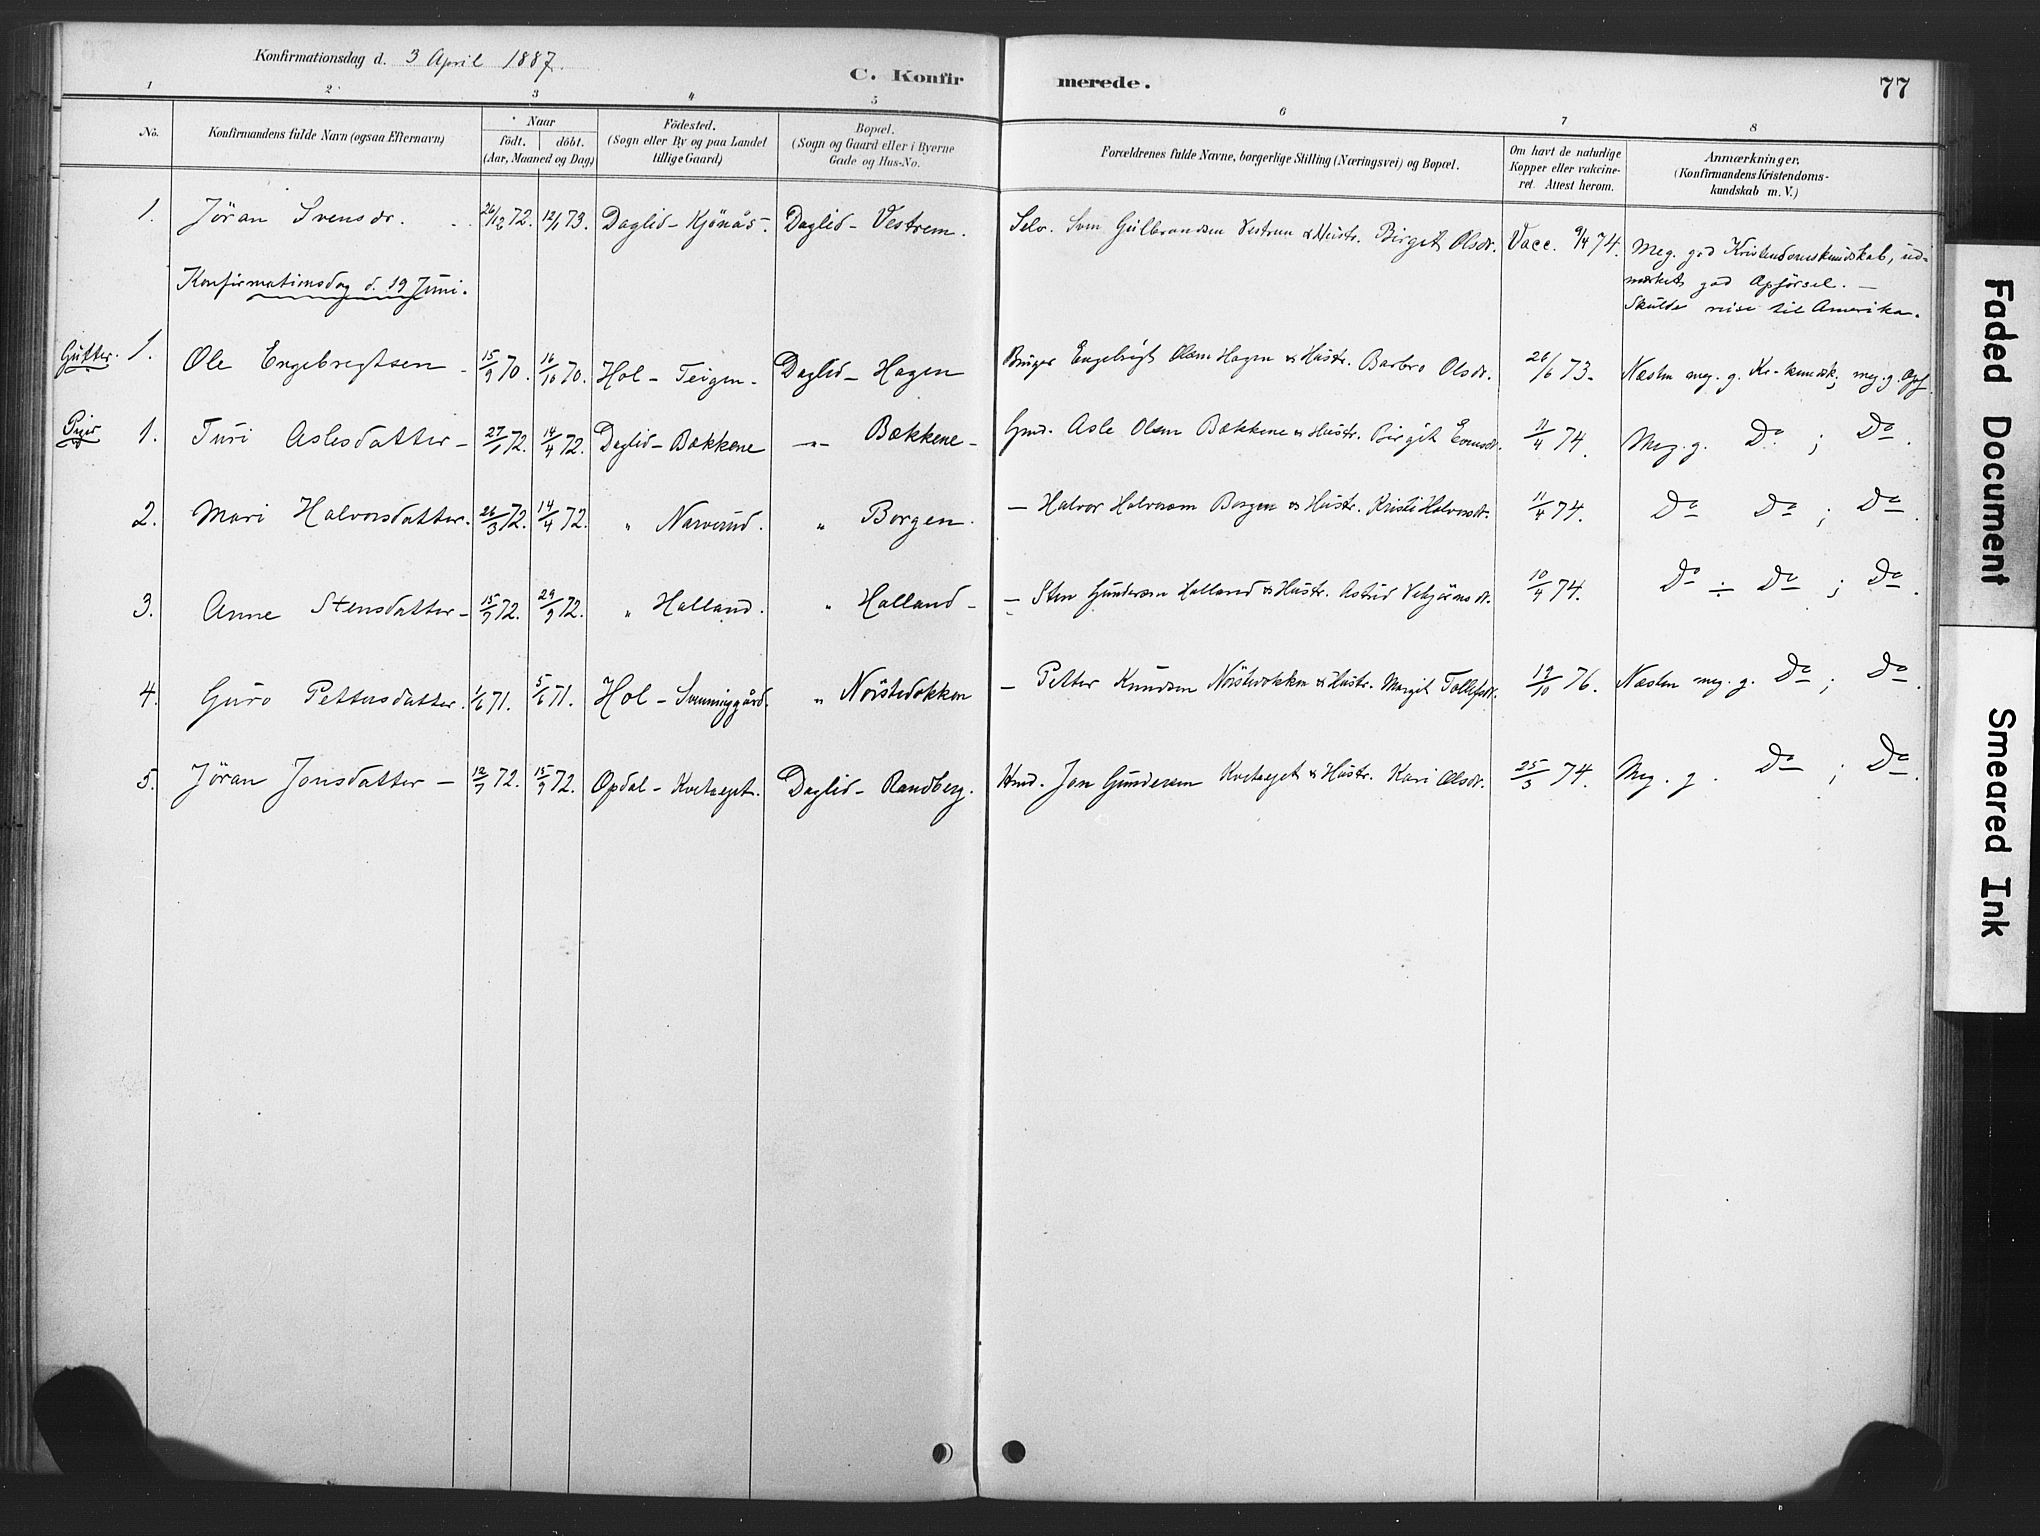 Konfirmationsdag d. 3 April 1887.
C. Konfirmerede.
77
1 2 3 4 5 6 7 8
No.
Konfirmandens fulde Navn (ogsaa Efternavn)
Naar
födt. döbt.
(Aar, Maaned og Dag)
Födested.
(Sogn eller By og paa Landet
tillige Gaard)
Bopæl.
(Sogn og Gaard eller i Byerne
Gade og Hus-No.
Forældrenes fulde Navne, borgerlige Stilling (Næringsvei) og Bopæl.
Om havt de naturlige
Kopper eller vakcine-
ret. Attest herom.
Anmærkninger.
(Konfirmandens Kristendoms-
kundskab m. V.)
1. Jöran Svensdr. 26/12 72. 12/1 73. Daglid - Kjönås. Daglid - Vestrem. Selv. Sven Gulbrandsen Vestrem & Hustr. Birgit Olsdr. Vacc. 9/4 74. Meg. god Kristendomskundskab, ud-
mærket god Opförsel. —
Skulde reise til Amerika.
Konfirmationsdag d. 19 Juni.
Gutter. 1. Ole Engebregtsen - 15/9 70. 16/10 70. Hol - Teigen - Daglid - Hagen Bruger Engebrigt Olsen Hagen & Hustr. Barbro Olsdr. 26/6 73. Næsten meg. g. Kr-kundsk; meg. g. Opf.
Piger 1. Turi Aslesdatter - 27/ 72. 14/4 72. Daglid - Bækkene -"- Bækkene - Gmd. Asle Olsen Bækkene & Hustr. Birgit Evensdr. 11/4 74. Meg. g. Do ; Do.
2. Mari Halvorsdatter. 26/3 72. 14/4 72. " Narverud. " Borgen. - Halvor Halvorsen Borgen & Hustr. Kristi Halvorsdr. 11/4 74. Do Do ; Do.
3. Anne Stensdatter - 15/9 72. 29/9 72. " Halland. " Halland - - Sten Gundersen Halland & Hustr. Astrid Vebjörnsdr. 10/4 74. Do ÷ Do ; Do.
4. Guro Pettersdatter. 1/6 71. 5/6 71. Hol - Sveinsgård. " Nörstedokken - Petter Knudsen Nörstedokken & Hustr. Margit Tollefsdr. 19/10 76. Næsten meg. g. Do ; Do.
5. Jöran Jonsdatter - 12/9 72. 15/9 72. Opdal - Kvitaeyet. Daglid - Randberg. Hmd. Jon Gundersen Kvitaeyet & Hustr. Kari Olsdr. 25/3 74. Meg. g. Do ; Do.
Faded Document
Smeared Ink